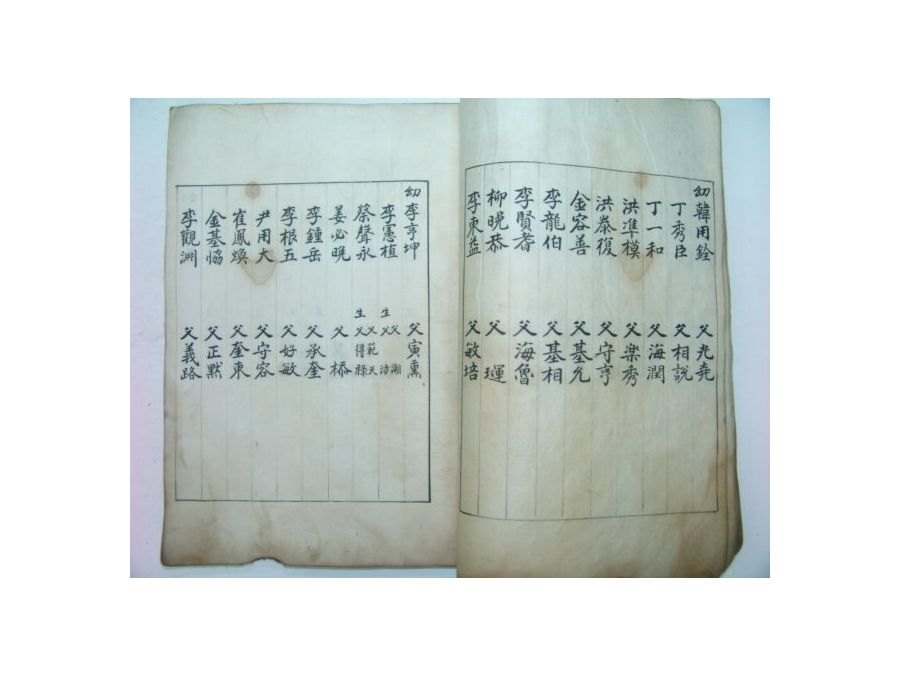 幼 韓用銓 父光堯
丁秀臣 父相說
丁一和 父海潤
洪準模 父樂秀
洪泰復 父守亨
金容善 父基允
李龍伯 父基相
李賢耆 父海魯
柳晩恭 父𤨒
李東益 父敏培
幼 李亨坤 父寅熏
李憲植 父湖 生父汸
蔡聲永 父範天 生父得祿
姜必晩 父𣚦
李鍾岳 父承奎
李根五 父好敏
尹用大 父守容
崔鳳煥 父奎東
金基恊 父正默
李觀淵 父義路